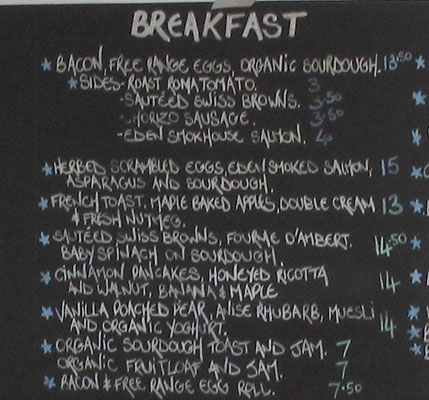 BREAKFAST
* BACON, FREE RANGE EGGS, ORGANIC SOURDOUGH. 13.50
* SIDES - ROAST ROMATOMATO. 3
- SAUTÉED SWISS BROWNS. 3.50
- CHORIZO SAUSAGE. 3.50
- EDEN SMOKHOUSE SALMON. 4
* HERBED SCRAMBLED EGGS, EDEN SMOKED SALMON, 15
ASPARAGUS AND SOURDOUGH.
* FRENCH TOAST. MAPLE BAKED APPLES, DOUBLE CREAM 13
& FRESH NUTMEG.
* SAUTÉED SWISS BROWNS, FOURME D'AMBERT. 14.50
BABY SPINACH ON SOURDOUGH.
* CINNAMON PANCAKES, HONEYED RICOTTA 14
AND WALNUT, BANANA & MAPLE
* VANILLA POACHED PEAR, ANISE RHUBARB, MUESLI 14
AND ORGANIC YOGHURT.
* ORGANIC SOURDOUGH TOAST AND JAM. 7
ORGANIC FRUITLOAF AND JAM. 7
* BACON & FREE RANGE EGG ROLL. 7.50